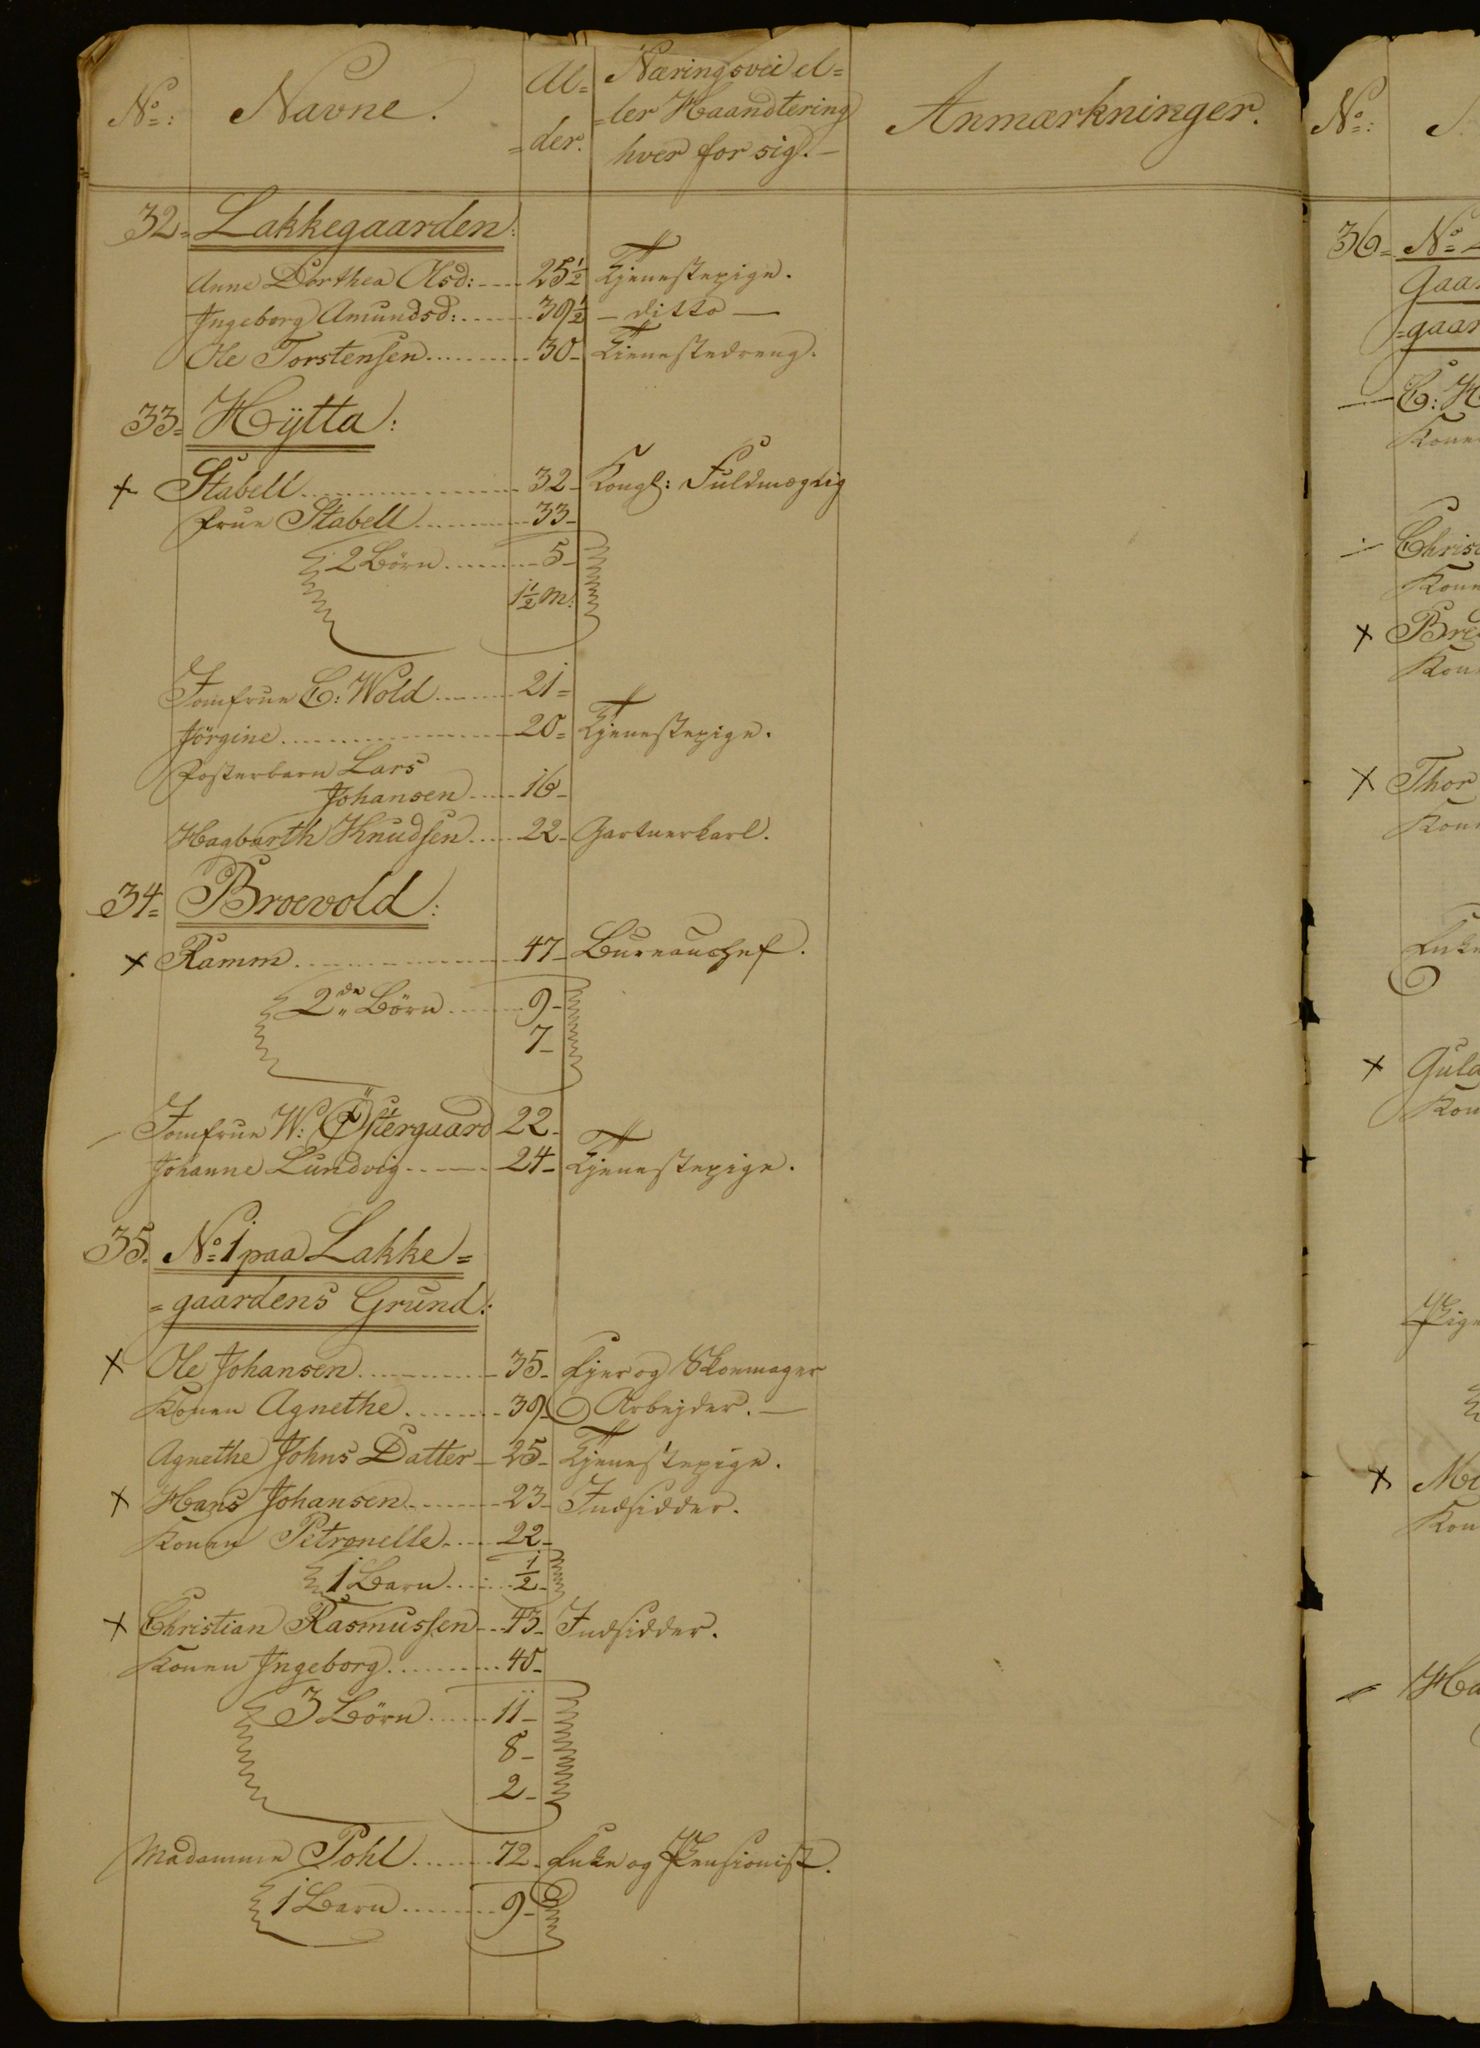 No: Navne. Al= Næringsvei el= Anmærkninger.
=der. =ler Haandtering
hver for sig. —
32= Lakkegaarden:
Anne Dorthea Olsd: ---- 25½ Tjenestepige.
Ingeborg Amundsd: ...... 39½ — ditto —
Ole Torstensen .......... 30- Tienestedreng.
33= Hÿtta:
x Stabell .................. 32- Kongl: Fuldmægtig
Frue Stabell ............ 33-
2 Börn ......... 5-
1½ M:
Jomfrue C: Wold ...... 21=
Jörgine .................. 20= Tjenestepige.
Fosterbarn Lars
Johansen ..... 16-
Hagbarth Knudsen .... 22- Gartnerkarl.
34= Broevold:
x Ramm .................. 47- Bureauchef.
2de Börn ....... 9-
7-
- Jomfrue W: Östergaard 22-
Johanne Lundvig ------ 24- Tjenestepige.
35. No 1 paa Lakke=
=gaardens Grund:
x Ole Johansen ............ 35- Ejer og Skoemager
Konen Agnethe ........ 39- Arbejder. —
Agnethe Johns Datter - 25- Tjenestepige.
x Hans Johansen ........ 23- Indsidder.
Konen Petronelle ..... 22-
1 Barn ....... ½-
x Christian Rasmussen -- 43- Indsidder.
Konen Ingeborg .......... 40-
3 Börn ...... 11-
8-
2-
Madamme Pohl ....... 72- Enke og Pensionist.
1 Barn ......... 9-
No:
36= No
Gaa
=gaar
C: H
Kone
Chris
Kon
x Bre
Kon
x Thor
Kon
Enke
x Guld
Kon
Pige
x
Kon
Ha